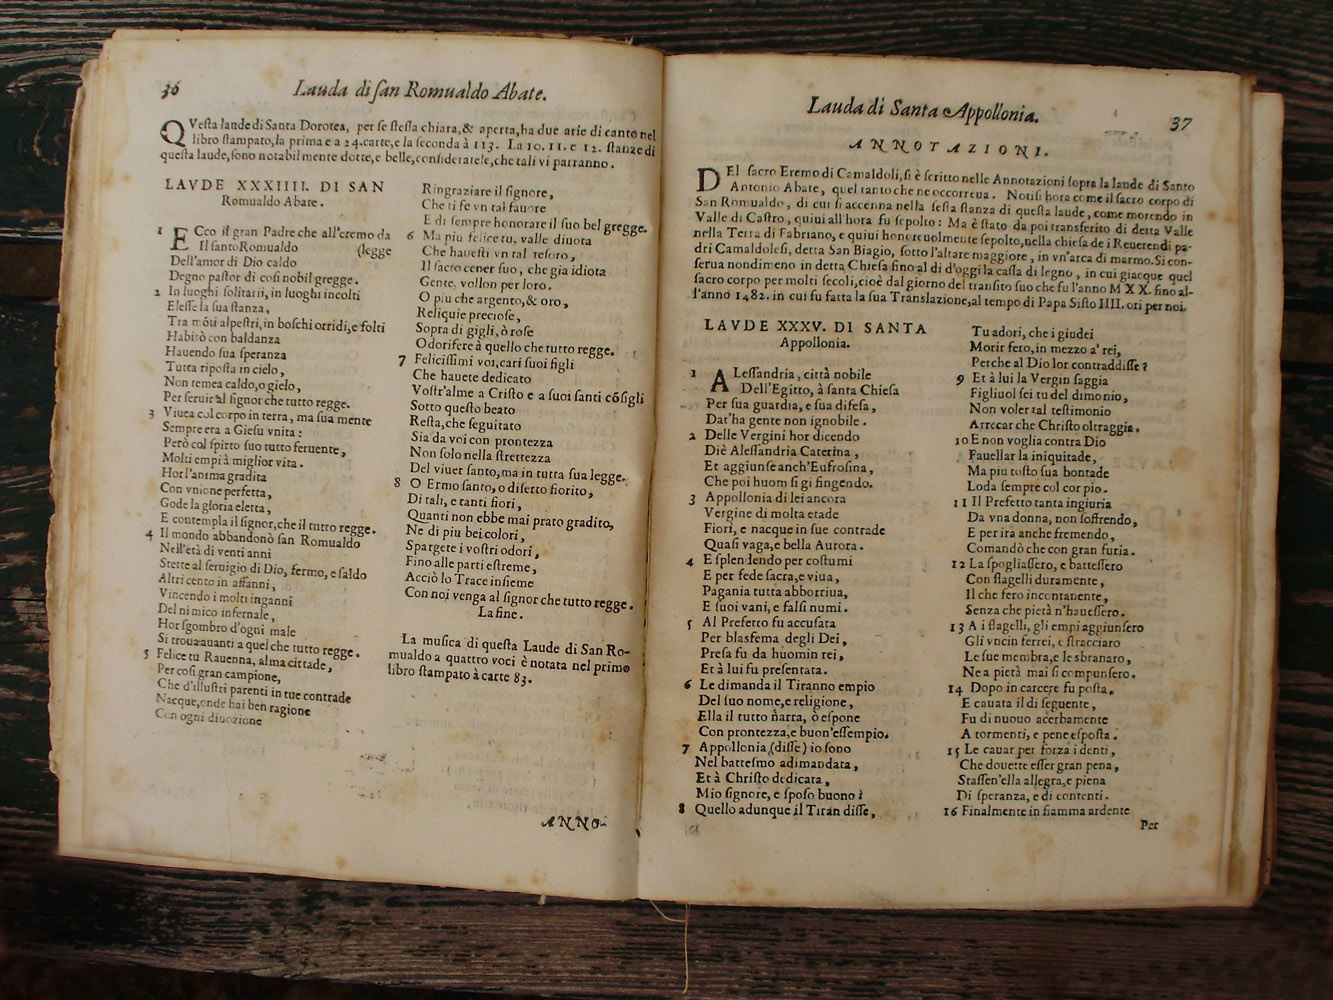 36
Lauda di ſan Romualdo Abate.
QVeſta laude di Santa Dorotea, per ſe ſteſſa chiara, & aperta, ha due arie di canto nel
libro ſtampato, la prima e a 24. carte, e la ſeconda à 113. La 10. 11. e 12. ſtanze di
queſta laude, ſono notabilmente dotte, e belle, conſideratele, che tali vi parranno.
LAVDE XXXIIII. DI SAN
Romualdo Abate.
1 ECco il gran Padre che all'eremo da
Il ſanto Romualdo (legge
Dell'amor di Dio caldo
Degno paſtor di coſi nobil gregge.
2 In luoghi ſolitarii, in luoghi incolti
Eleſſe la ſua ſtanza,
Tra mõti alpeſtri, in boſchi orridi, e folti
Habitò con baldanza
Hauendo ſua ſperanza
Tutta ripoſta in cielo,
Non temea caldo, o gielo,
Per ſeruir al ſignor che tutto regge.
3 Viuea col corpo in terra, ma ſua mente
Sempre era a Gieſu vnita:
Però col ſpirto ſuo tutto feruente,
Molti empi à miglior vita.
Hor l'anima gradita
Con vnione perfetta,
Gode la gloria eletta,
E contempla il ſignor, che il tutto regge.
4 Il mondo abbandonò ſan Romualdo
Nell'età di venti anni
Stette al ſeruigio di Dio, fermo, e ſaldo
Altri cento in affanni,
Vincendo i molti inganni
Del nimico infernale,
Hor ſgombro d'ogni male
Si troua auanti a quel che tutto regge.
5 Felice tu Rauenna, alma cittade,
Per coſi gran campione,
Che d'illuſtri parenti in tue contrade
Nacque, onde hai ben ragione
Con ogni diuozione
Ringraziare il ſignore,
Che ti fe vn tal fauore
E di ſempre honorare il ſuo bel gregge.
6 Ma piu felice tu, valle diuota
Che haueſti vn tal teſoro,
Il ſacro cener ſuo, che gia idiota
Gente, vollon per loro.
O piu che argento, & oro,
Reliquie precioſe,
Sopra di gigli, ò roſe
Odorifere à quello che tutto regge.
7 Feliciſſimi voi, cari ſuoi figli
Che hauete dedicato
Voſtr'alme a Criſto e a ſuoi ſanti cõſigli
Sotto queſto beato
Reſta, che ſeguitato
Sia da voi con prontezza
Non ſolo nella ſtrettezza
Del viuer ſanto, ma in tutta ſua legge.
8 O Ermo ſanto, o diſerto fiorito,
Di tali, e tanti fiori,
Quanti non ebbe mai prato gradito,
Ne di piu bei colori,
Spargete i voſtri odori,
Fino alle parti eſtreme,
Acciò lo Trace inſieme
Con noi venga al ſignor che tutto regge.
La fine.
La muſica di queſta Laude di San Ro-
mualdo a quattro voci è notata nel primo
libro ſtampato à carte 83.
ANNO-
Lauda di Santa Appollonia.
37
ANNOTAZIONI.
DEl ſacro Eremo di Camaldoli, ſi è ſcritto nelle Annotazioni ſopra la laude di Santo
Antonio Abate, quel tanto che ne occorreua. Notiſi hora come il ſacro corpo di
San Romualdo, di cui ſi accenna nella ſeſta ſtanza di queſta laude, come morendo in
Valle di Caſtro, quiui all'hora fu ſepolto: Ma è ſtato da poi transferito di detta Valle
nella Terra di Fabriano, e quiui honoreuolmente ſepolto, nella chieſa de i Reuerendi pa-
dri Camaldoleſi, detta San Biagio, ſotto l'altare maggiore, in vn'arca di marmo. Si con-
ſerua nondimeno in detta Chieſa fino al dì d'oggi la caſſa di legno, in cui giacque quel
ſacro corpo per molti ſecoli, cioè dal giorno del tranſito ſuo che fu l'anno MXX. fino al-
l'anno 1482. in cui fu fatta la ſua Translazione, al tempo di Papa Siſto IIII. ori per noi.
LAVDE XXXV. DI SANTA
Appollonia.
1 ALeſſandria, città nobile
Dell'Egitto, à ſanta Chieſa
Per ſua guardia, e ſua difeſa,
Dat'ha gente non ignobile.
2 Delle Vergini hor dicendo
Diè Aleſſandria Caterina,
Et aggiunſe anch'Eufroſina,
Che poi huom ſi gi fingendo.
3 Appollonia di lei ancora
Vergine di molta etade
Fiorì, e nacque in ſue contrade
Quaſi vaga, e bella Aurora.
4 E ſplendendo per coſtumi
E per fede ſacra, e viua,
Pagania tutta abborriua,
E ſuoi vani, e falſi numi.
5 Al Prefetto fu accuſata
Per blasfema degli Dei,
Preſa fu da huomin rei,
Et à lui fu preſentata.
6 Le dimanda il Tiranno empio
Del ſuo nome, e religione,
Ella il tutto narra, ò eſpone
Con prontezza, e buon'eſſempio.
7 Appollonia (diſſe) io ſono
Nel batteſmo adimandata,
Et à Chriſto dedicata,
Mio ſignore, e ſpoſo buono:
8 Quello adunque il Tiran diſſe,
Tu adori, che i giudei
Morir fero, in mezzo a' rei,
Perche al Dio lor contraddiſſe?
9 Et à lui la Vergin ſaggia
Figliuol ſei tu del dimonio,
Non voler tal teſtimonio
Arrecar che Chriſto oltraggia.
10 E non voglia contra Dio
Fauellar la iniquitade,
Ma piu toſto ſua bontade
Loda ſempre col cor pio.
11 Il Prefetto tanta ingiuria
Da vna donna, non ſoffrendo,
E per ira anche fremendo,
Comandò che con gran furia.
12 La ſpogliaſſero, e batteſſero
Con flagelli duramente,
Il che fero incontanente,
Senza che pietà n'haueſſero.
13 A i flagelli, gli empi aggiunſero
Gli vncin ferrei, e ſtracciaro
Le ſue membra, e le sbranaro,
Ne a pietà mai ſi compunſero.
14 Dopo in carcere fu poſta,
E cauata il dì ſeguente,
Fu di nuouo acerbamente
A tormenti, e pene eſpoſta.
15 Le cauar per forza i denti,
Che douette eſſer gran pena,
Staſſen'ella allegra, e piena
Di ſperanza, e di contenti.
16 Finalmente in fiamma ardente
Per